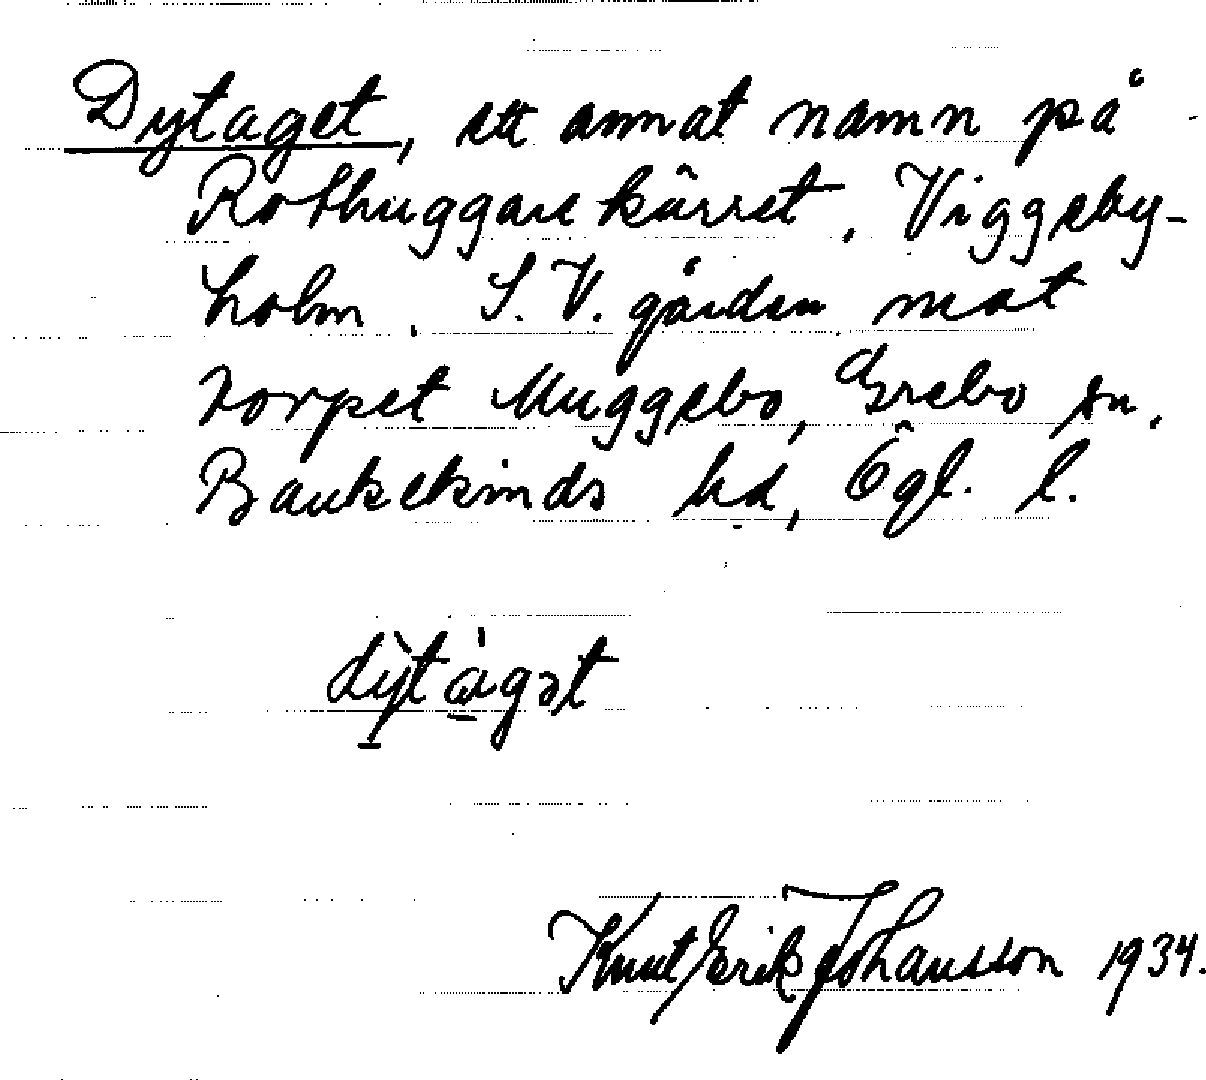 Dytaget, ett annat namn på
Rothuggarekärret, Viggeby-
holm, S.V. gården mot
torpet Muggebo, Grebo sn.
Bankekinds hd, Ögl. l.
dỳtágət
Knut Erik Johansson 1934.